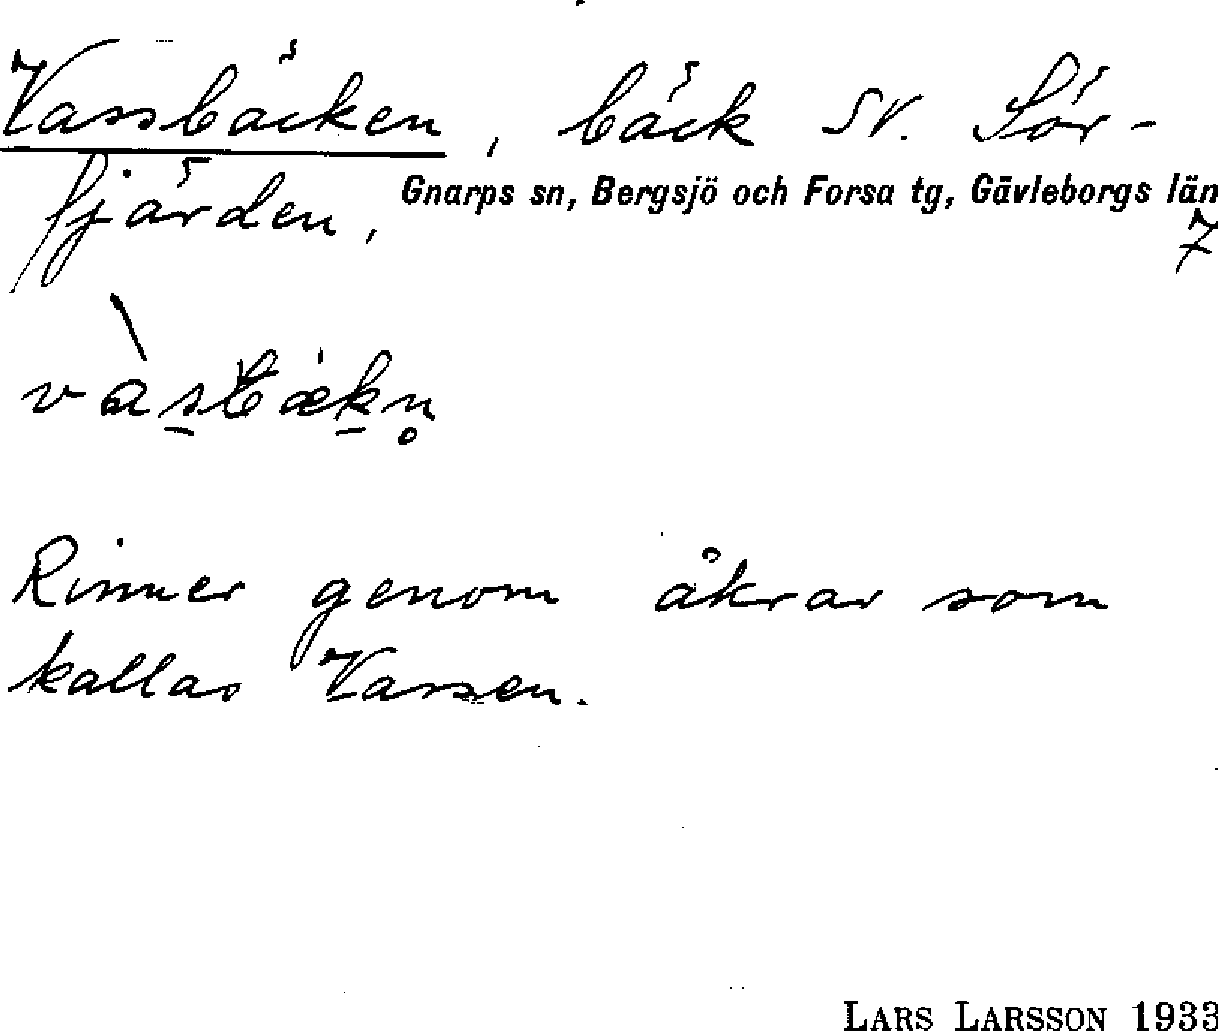 Vassbäcken, bäck SV. Sör-
fjärden,
Gnarps sn, Bergsjö och Forsa tg, Gävleborgs län
7
Rinner genom åkrar som
kallas Vassen.
LARS LARSSON 1933